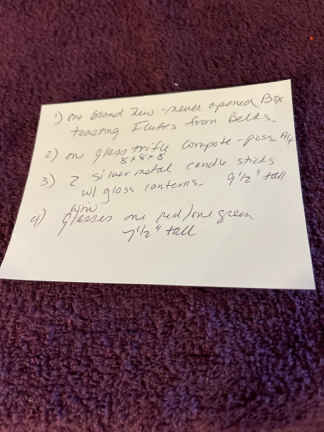 1) one brand new - never opened Box
toasting Flutes from Belks.
2) one glass trifle compote - poss AG
8 x 8 x 8
3) 2 silver metal candle sticks
w/ glass lanterns. 9 1/2" tall
wine
4) Glasses one red/one green
7 1/2" tall